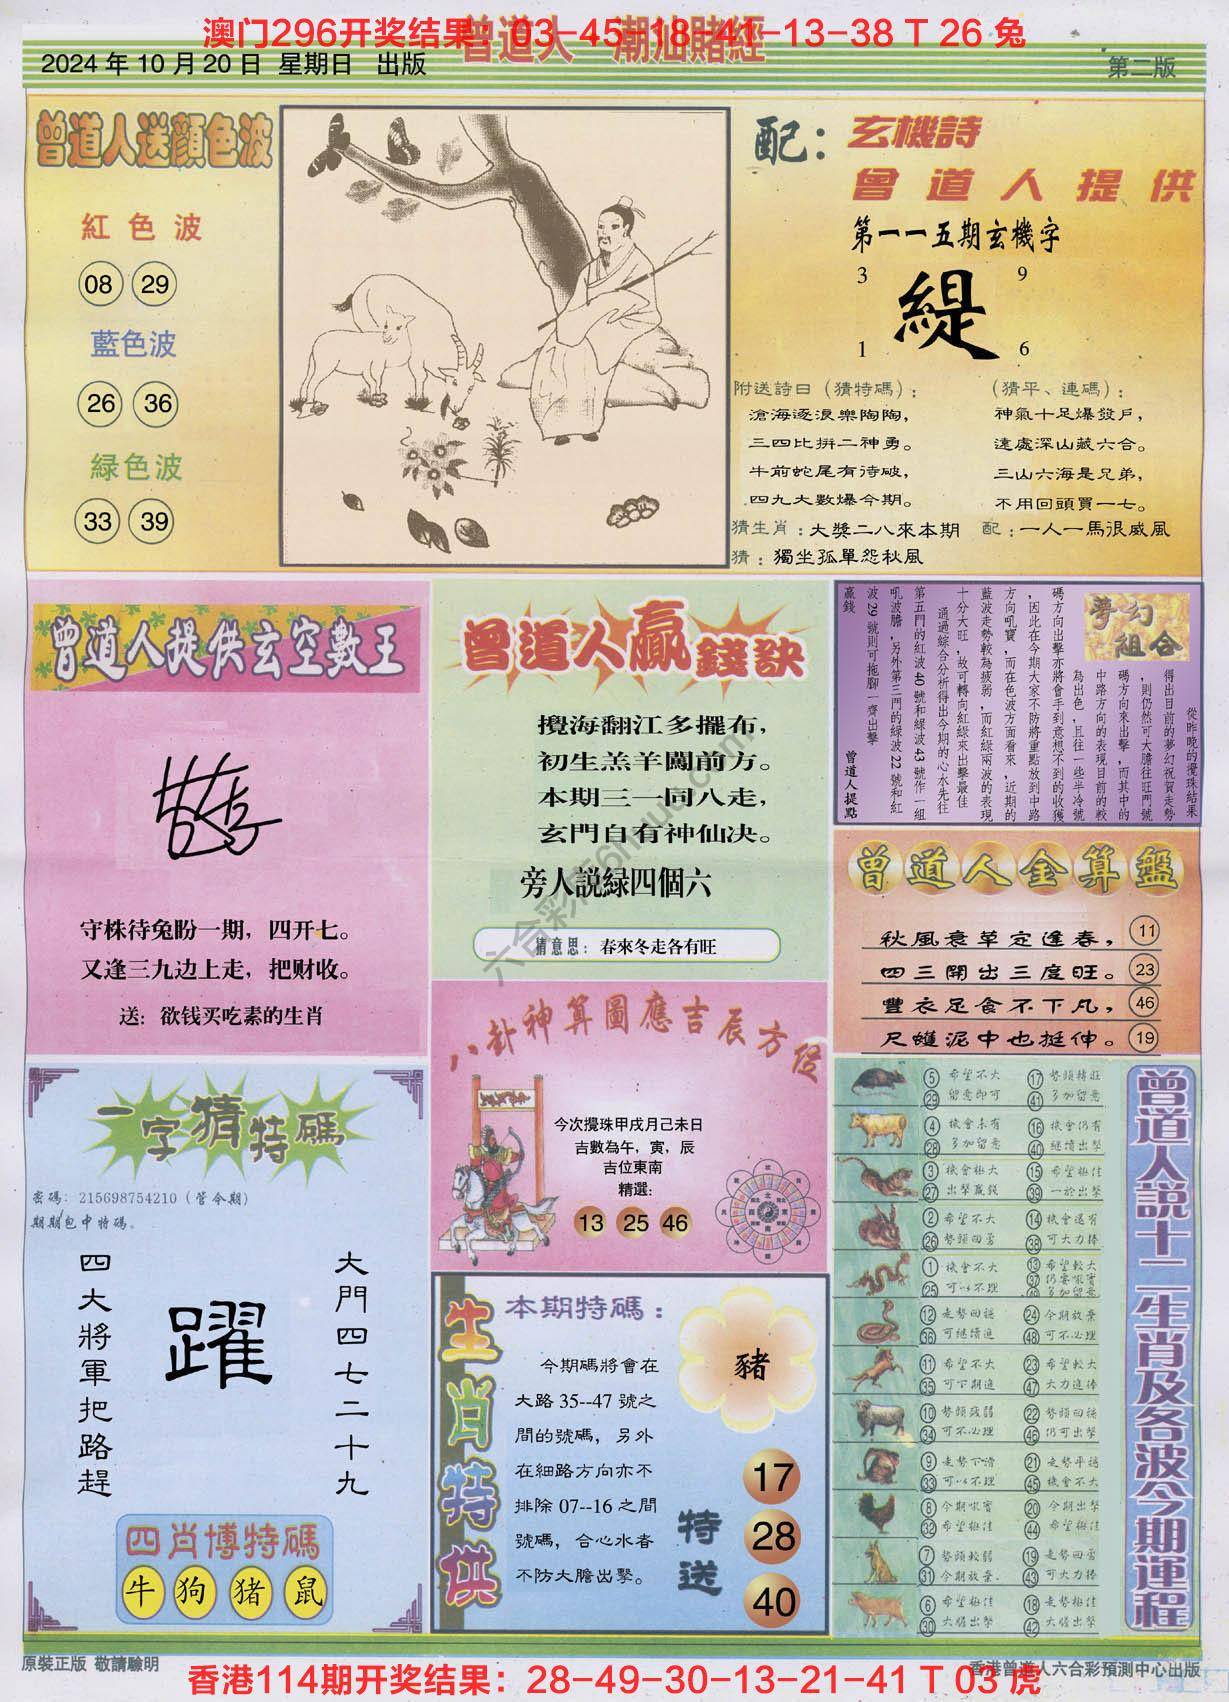 澳门296开奖结果：03-45-18-41-13-38 T 26 兔
曾道人 潮汕賭經
2024 年 10 月 20 日 星期日 出版
第二版
曾道人送顔色波
紅色波
08 29
藍色波
26 36
緑色波
33 39
配：玄機詩
曾道人提供
第一一五期玄機字
3 9
緹
1 6
附送詩曰（猜特碼）：
滄海逐浪樂陶陶，
三四比拚二神勇。
牛前蛇尾有待破，
四九大數爆今期。
（猜平、連碼）：
神氣十足爆發戶，
遠處深山藏六合。
三山六海是兄弟，
不用回頭買一七。
猜生肖：大獎二八來本期
配：一人一馬很威風
猜：獨坐孤單怨秋風
曾道人提供玄空數王
守株待兔盼一期，四开七。
又逢三九边上走，把财收。
送：欲钱买吃素的生肖
曾道人贏錢訣
攪海翻江多擺布，
初生羔羊闖前方。
本期三一同八走，
玄門自有神仙决。
旁人説緑四個六
猜意思：春來冬走各有旺
夢幻組合
從昨晚的攪珠結果
得出目前的夢幻祝賀走勢
，則仍然可大膽往旺門號
碼方向來出擊，而其中的
中路方向的表現目前的較
為出色，且往一些半冷號
碼方向出擊亦將會手到意想不到的收獲
，因此在今期大家不防將重點放到中路
方向吼寶，而在色波方面看來，近期的
藍波走勢較為疲弱，而紅綠兩波的表現
十分大旺，故可轉向紅綠來出擊最佳
通過綜合分析得出今期的心水先往
第五門的紅波 40 號和緑波 43 號作一組
吼波膽，另外第三門的綠波 22 號和紅
波 29 號則可拖腳一齊出擊
贏錢
曾道人提點
曾道人金算盤
秋風衰草定逢春， 11
四三開出三度旺。 23
豐衣足食不下凡， 46
尺蠖泥中也挺伸。 19
八卦神算圖應吉辰方位
今次攪珠甲戌月己未日
吉數為午，寅，辰
吉位東南
精選：
13 25 46
一字猜特碼
密碼：215698754210（管令期）
期期包中特碼。
大門四七二十九
躍
四大將軍把路趕
四肖博特碼
牛 狗 猪 鼠
生肖特供
本期特碼：
豬
今期碼將會在
大路 35--47 號之
間的號碼，另外
在細路方向亦不
排除 07--16 之間
號碼，合心水者
不防大膽出擊。
特送
17
28
40
曾道人説十二生肖及各波今期運程
5 希望不大 17 勢頭轉旺
29 留意即可 41 多加留意
4 機會未有 16 機會仍有
28 多加留意 40 繼續出擊
3 機會極大 15 希望極佳
27 出擊贏錢 39 一於出擊
2 希望不大 14 機會還有
26 勢頭回勇 38 可大力捧
1 機會不大 13 希望較大
25 可以不理 37 仍要吼實
多加留意
12 走勢回穩 24 今期放棄
36 可繼續追 48 可不必理
11 希望不大 23 希望較大
35 可下期追 47 大力追捧
10 勢頭疲弱 22 勢頭回穩
34 可不必理 46 仍可出擊
9 走勢下滑 21 走勢平穩
33 可以不理 45 機會不大
8 今期吼實 20 今期出擊
32 希望極佳 44 希望極佳
7 勢頭較弱 19 走勢回勇
31 今期放棄. 43 可大力捧
6 希望極佳 18 走勢極佳
30 大膽出擊 42 大膽出擊
原裝正版 敬請驗明
香港曾道人六合彩預測中心出版
香港114期开奖结果：28-49-30-13-21-41 T 03 虎